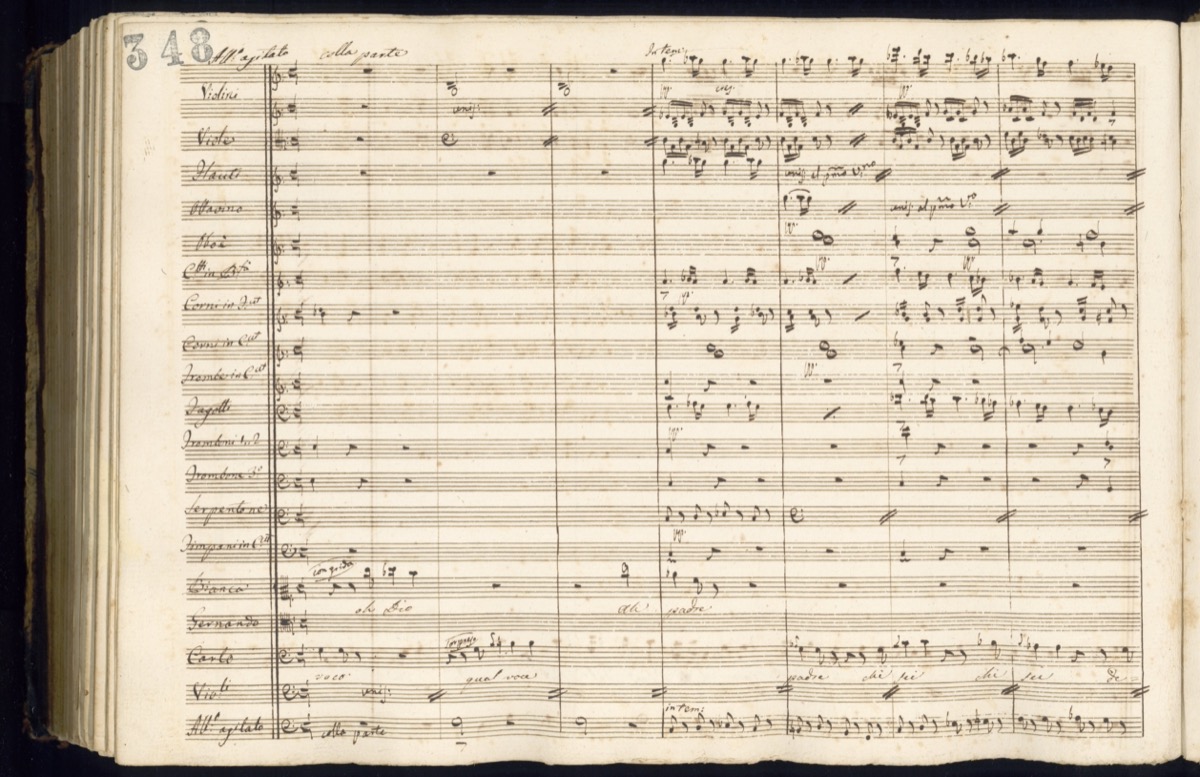 348
All.º agitato colla parte In tem:
Violini
unis:
Viole
Flauti unis: al p.mo V.no
Ottavino unis: al p.mo V.no
Oboè
C.tti in B.fa
Corni in F.ut
Corni in C.ut
Trombe in C.ut
Fagotti
Tromboni 1. 2.
Trombone 3.º
Serpentone
Timpani in C.ut
Bianca con grido
oh Dio Ah padre
Fernando
Carlo
voce qual voce padre chi sei chi sei De
Viol.li unis:
in tem:
All.º agitato colla parte